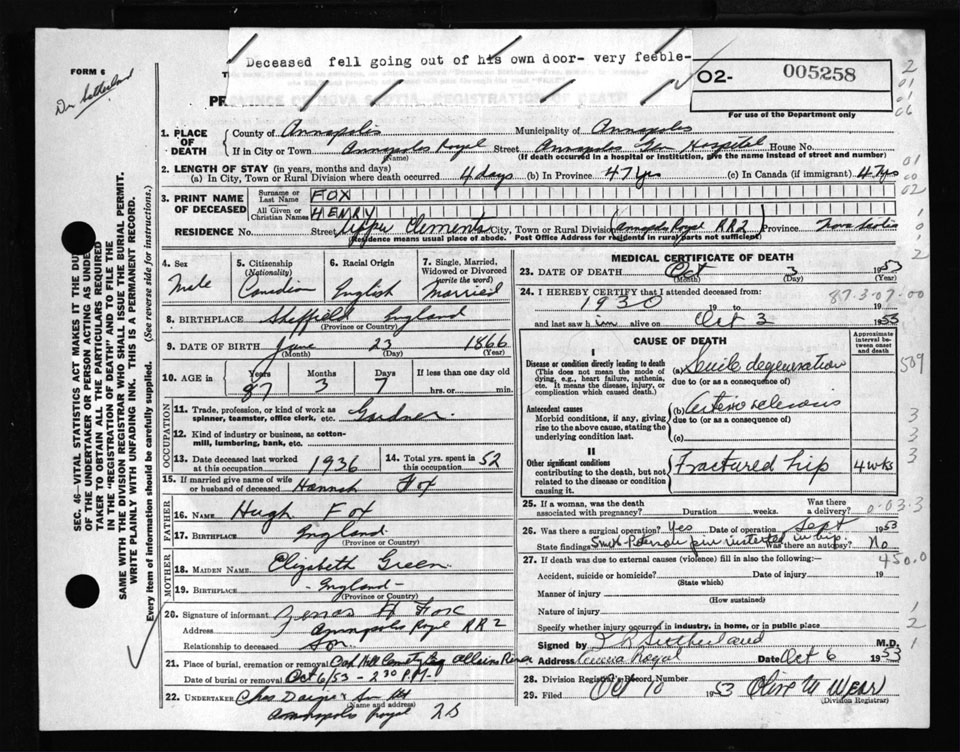 Deceased fell going out of his own door- very feeble-
FORM 6
Dr Sutherland
O2- 005258
PROVINCE OF NOVA SCOTIA. REGISTRATION OF DEATH
For use of the Department only
2
01
01
06
1. PLACE OF DEATH
County of Annapolis Municipality of Annapolis
If in City or Town Annapolis Royal Street Annapolis Gen Hospital House No.
(Name) (If death occurred in a hospital or institution, give the name instead of street and number)
2. LENGTH OF STAY (in years, months and days)
(a) In City, Town or Rural Division where death occurred 4 days (b) In Province 47 yrs (c) In Canada (if immigrant) 47 yrs
01
00
02
3. PRINT NAME OF DECEASED
Surname or Last Name FOX
All Given or Christian Names HENRY
RESIDENCE No. Street Upper Clements City, Town or Rural Division (Annapolis Royal RR2) Province Nova Scotia
(Residence means usual place of abode. Post Office Address for residents in rural parts not sufficient)
1
0
1
2
4. Sex Male
5. Citizenship (Nationality) Canadian
6. Racial Origin English
7. Single, Married, Widowed or Divorced (write the word) Married
8. BIRTHPLACE Sheffield England
(Province or Country)
9. DATE OF BIRTH June 23 1866
(Month) (Day) (Year)
10. AGE in Years 87 Months 3 Days 7 If less than one day old hrs. or min.
OCCUPATION
11. Trade, profession, or kind of work as spinner, teamster, office clerk, etc. Gardner
12. Kind of industry or business, as cotton-mill, lumbering, bank, etc.
13. Date deceased last worked at this occupation 1936
14. Total yrs. spent in this occupation 52
15. If married give name of wife or husband of deceased Hannah Fox
FATHER
16. NAME Hugh Fox
17. BIRTHPLACE England
(Province or Country)
MOTHER
18. MAIDEN NAME Elizabeth Green
19. BIRTHPLACE - England -
(Province or Country)
20. Signature of informant H Fox
Address Annapolis Royal RR2
Relationship to deceased Son
21. Place of burial, cremation or removal Oak Hill Cemetery
Date of burial or removal Oct 6/53 - 2 30 P.M.
22. UNDERTAKER Chas & Son
(Name and address)
Annapolis Royal NS
MEDICAL CERTIFICATE OF DEATH
23. DATE OF DEATH Oct 3 1953
(Month) (Day) (Year)
24. I HEREBY CERTIFY that I attended deceased from:
1930 19 to 19
87-3-07-00
and last saw him alive on Oct 3 1953
CAUSE OF DEATH
Approximate interval between onset and death
I
Disease or condition directly leading to death
(This does not mean the mode of dying, e.g., heart failure, asthenia, etc. It means the disease, injury, or complication which caused death.)
(a) Senile degeneration
due to (or as a consequence of)
Antecedent causes
Morbid conditions, if any, giving rise to the above cause, stating the underlying condition last.
(b) Arterio sclerosis
due to (or as a consequence of)
(c)
II
Other significant conditions
contributing to the death, but not related to the disease or condition causing it.
Fractured hip 4 wks
3
3
3
25. If a woman, was the death associated with pregnancy? Duration weeks. Was there a delivery?
26. Was there a surgical operation? Yes Date of operation Sept 1953
State findings Smith-Peterson pin inserted in hip. Was there an autopsy? No
27. If death was due to external causes (violence) fill in also the following:-
450.0
Accident, suicide or homicide? Date of injury 19
(State which)
Manner of injury
(How sustained)
Nature of injury
Specify whether injury occurred in industry, in home, or in public place
1
2
Signed by Sutherland M.D.
Address Annapolis Royal Date Oct 6 1953
28. Division Registrar's Record Number
29. Filed Oct 10 1953 Olive M Wear
(Division Registrar)
SEC. 46-VITAL STATISTICS ACT MAKES IT THE DUTY
OF THE UNDERTAKER OR PERSON ACTING AS UNDER-
TAKER TO OBTAIN ALL THE PARTICULARS REQUIRED
IN THE "REGISTRATION OF DEATH" AND TO FILE THE
SAME WITH THE DIVISION REGISTRAR WHO SHALL ISSUE THE BURIAL PERMIT.
WRITE PLAINLY WITH UNFADING INK. THIS IS A PERMANENT RECORD.
Every item of information should be carefully supplied. (See reverse side for instructions.)